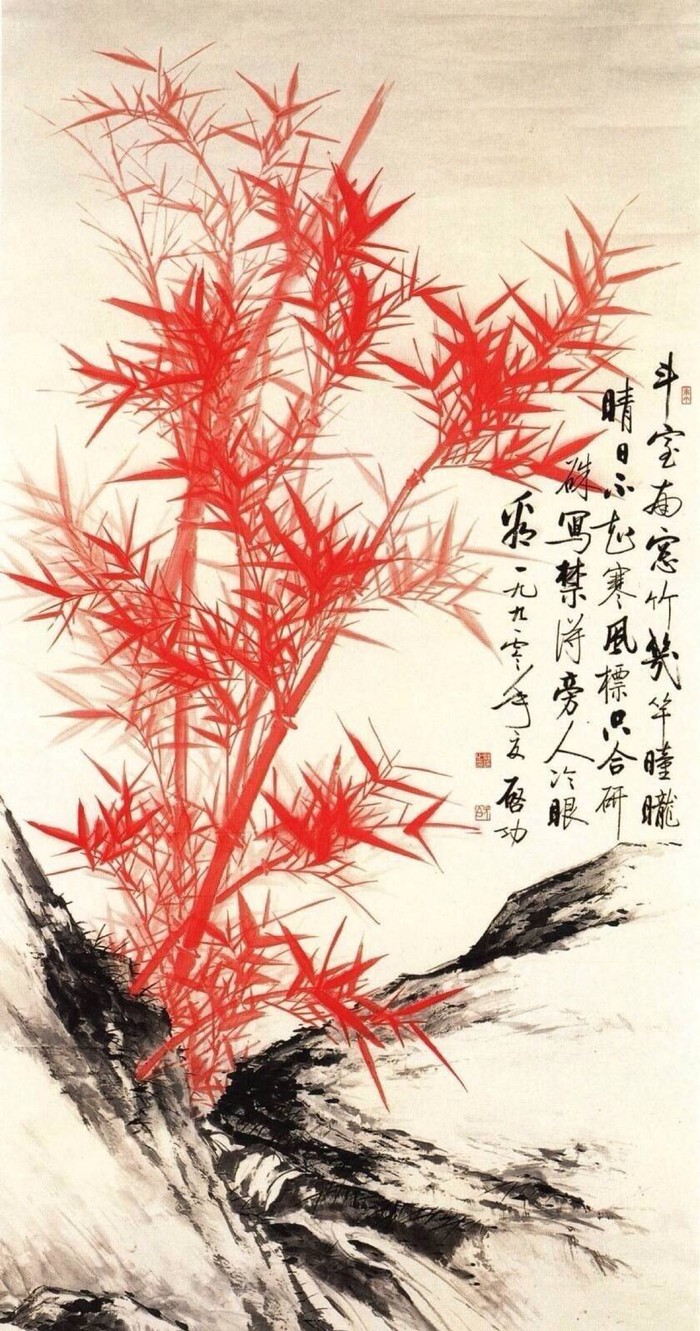 斗室南窗竹几竿曈曨一
晴日不知寒風標只合研
硃寫禁得旁人冷眼
看一九九〇年夏啓功